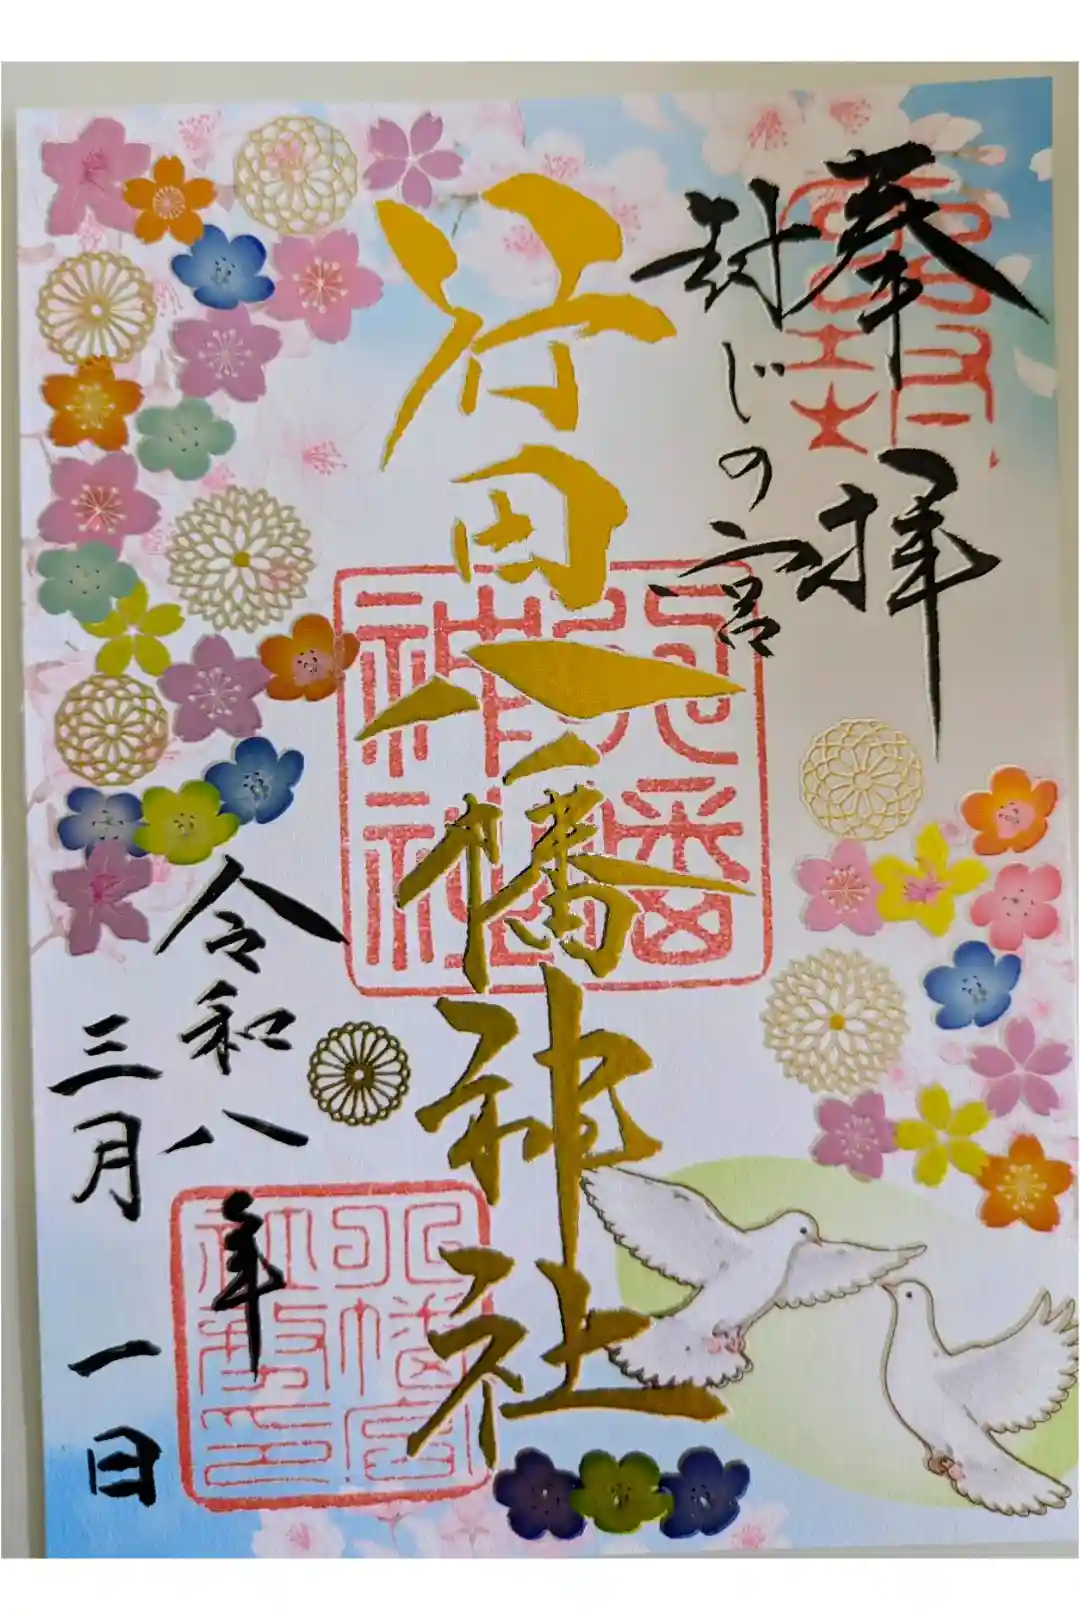 奉拝
封じの宮
行田八幡神社
八幡
神社
令和八年
三月一日